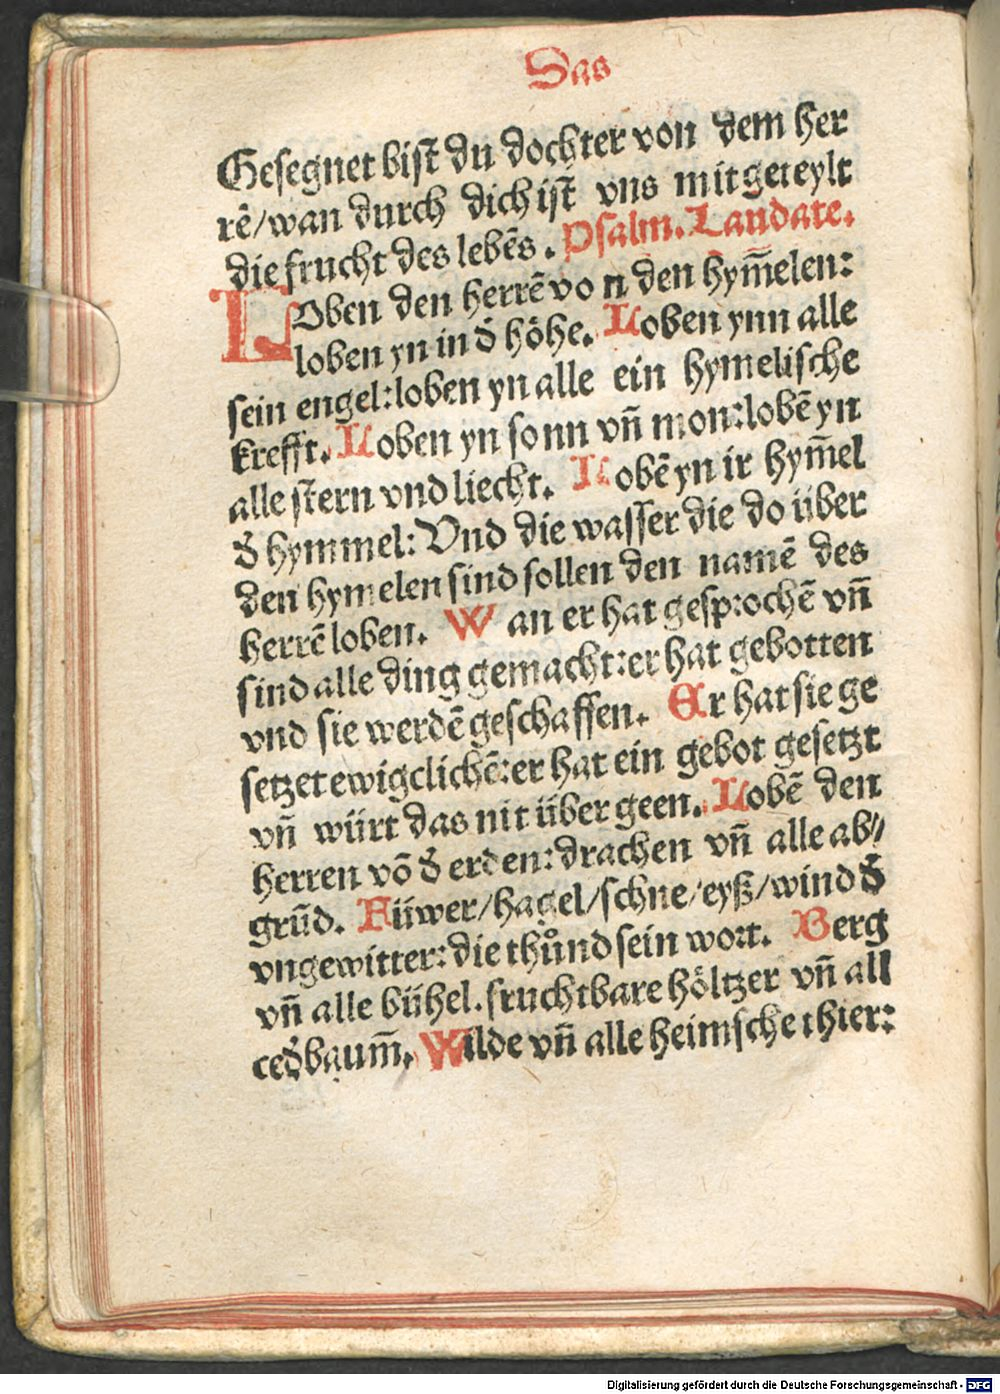 Das
Gesegnet bist du dochter von dem her
rē/wan durch dich ist vns mitgeteylt
die frucht des lebēs. Psalm. Laudate.
Loben den herrē von den hym̄elen:
loben yn in d̕ höhe. Loben ynn alle
sein engel:loben yn alle ein hymelische
krefft. Loben yn sonn vn̄ mon:lobē yn
alle stern vnd liecht. Lobē yn ir hym̄el
d̕ hymmel: Vnd die wasser die do über
den hymelen sind sollen den namē des
herrē loben. Wan er hat gesprochē vn̄
sind alle ding gemacht:er hat gebotten
vnd sie werdē geschaffen. Er hat sie ge
setzet ewigclichē:er hat ein gebot gesetzt
vn̄ würt das nit über geen. Lobē den
herren vō d̕ erden:drachen vn̄ alle ab⸗
grūd. Füwer/hagel/schne/eyß/wind d̕
vngewitter:die thůnd sein wort. Berg
vn̄ alle bühel.fruchtbare höltzer vn̄ all
ced̕baum̄. Wilde vn̄ alle heimsche thier:
Digitalisierung gefördert durch die Deutsche Forschungsgemeinschaft - DFG